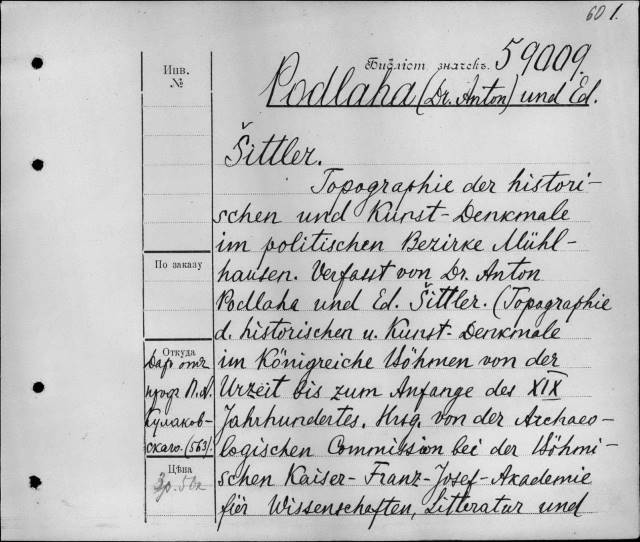 60 1.
Библіот. значекъ. 59009.
Podlaha (Dr. Anton) und Ed.
Šittler.
Topographie der histori-
schen und Kunst-Denkmale
im politischen Bezirke Mühl-
hausen. Verfasst von Dr. Anton
Podlaha und Ed. Šittler. (Topographie
d. historischen u. Kunst-Denkmale
im Königreiche Böhmen von der
Urzeit bis zum Anfange des XIX
Jahrhundertes. Hrsg. von der Archaeo-
logischen Commission bei der Böhmi-
schen Kaiser-Franz-Josef-Akademie
für Wissenschaften, Litteratur und
Инв.
№
По заказу
Откуда
Даръ отъ
проф. П. А.
Кулаков-
скаго. (563).
Цѣна
3р. 50к